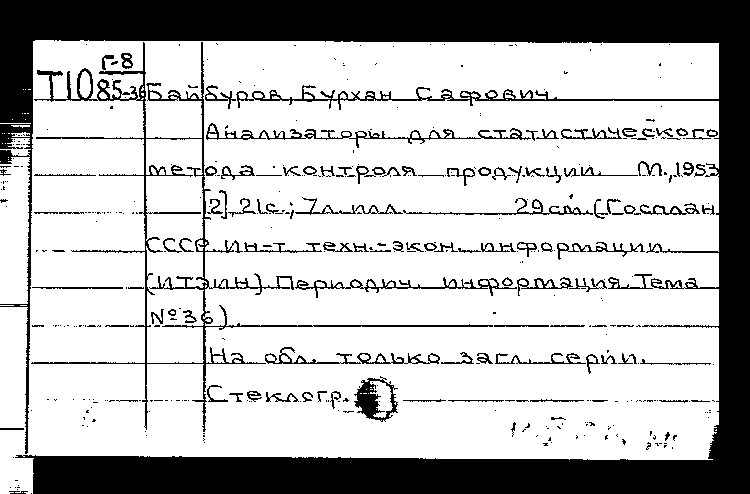 Г-8
Т10 85-36 Байбуров, Бурхан Сафович.
Анализаторы для статистического
метода контроля продукции. М., 1953
[2], 21с.; 7л. илл. 29 см. (Госплан
СССР. Ин-т техн.-экон. информации.
(ИТЭИН). Периодич. информация. Тема
№36).
На обл. только загл. серии.
Стеклогр.